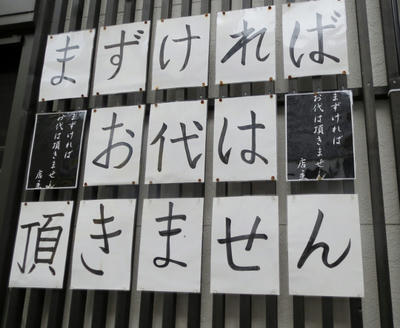 まずければ
お代は
頂きません
まずければ
お代は頂きません
店主
まずければ
お代は頂きません
店主